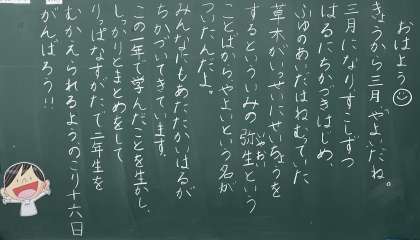 おはよう☺
きょうから三月やよいだね。
三月になりすこしずつ
はるにちかづきはじめ、
ふゆのあいだはねむていた
草木がいっせいにせいちょうを
するといういみの弥生という
やおい
ことばからやよいという名が
ついたんだよ。
みんなにもあたたかいはるが
ちかづいてきています。
この一年で学んだことを生かし、
しっかりとまとめをして
りっぱなすがたで二年生を
むかえられるようのこり十六日
がんばろう!!